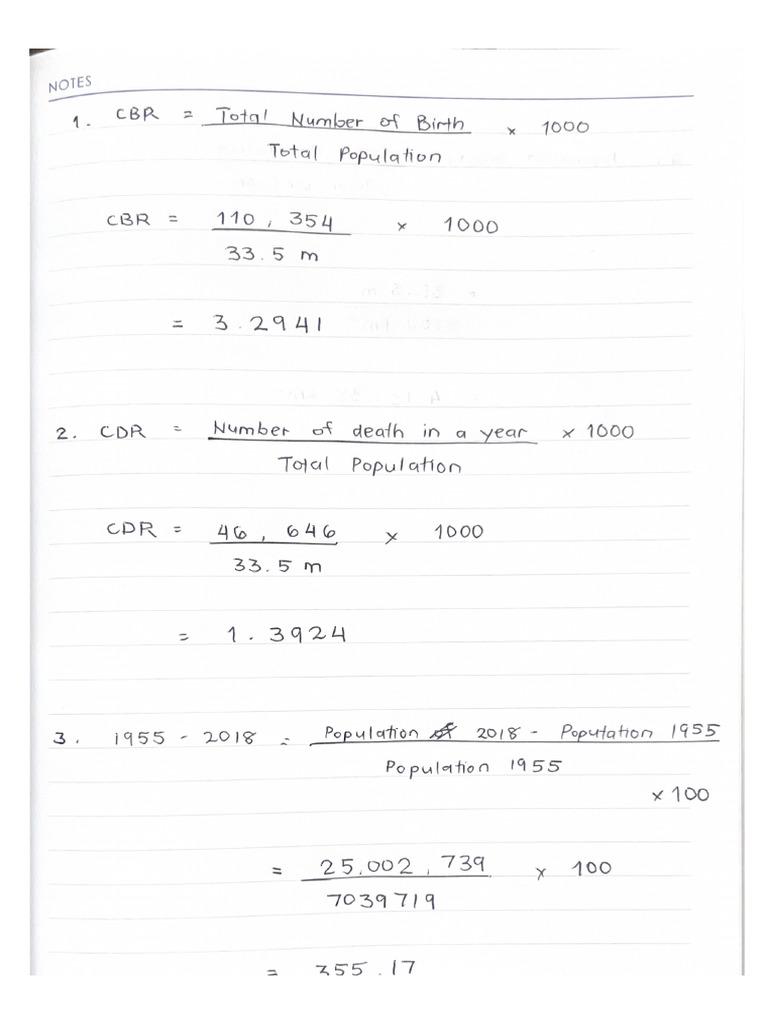 NOTES
1. CBR = Total Number of Birth × 1000
Total Population
CBR = 110, 354 × 1000
33.5 m
= 3.2941
2. CDR = Number of death in a year × 1000
Total Population
CDR = 46, 646 × 1000
33.5 m
= 1.3924
3. 1955 - 2018 = Population of 2018 - Population 1955
Population 1955
× 100
= 25,002,739 × 100
7039719
= 355.17